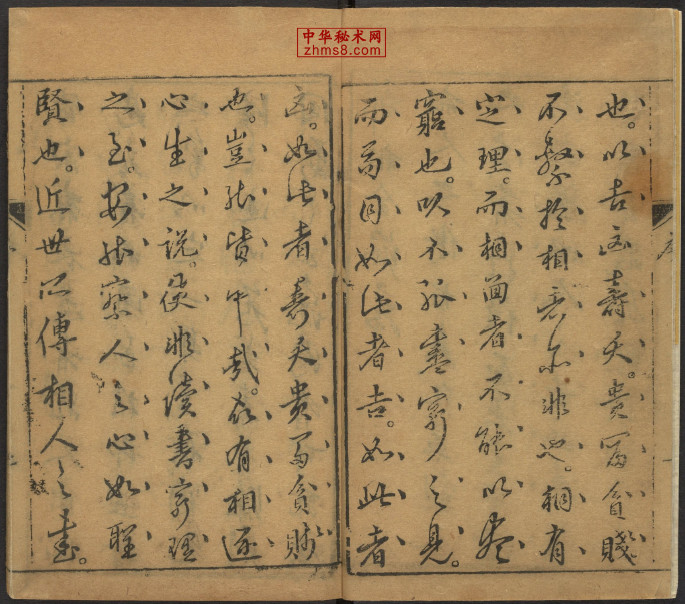 中华秘术网
zhms8.com
也。以吉凶壽夭。貴富貧賤
不繫於相者亦非也。相有
定理。而相面者不能以盡
窮也。不窮之見。
而苟目如此者吉。如此者
凶。如此者壽夭貴富貧賤
也。豈能皆中哉。故有相逐
心生之說。使非讀書窮理
之至。安能察人之心如聖
賢也。近世所傳相人之書。